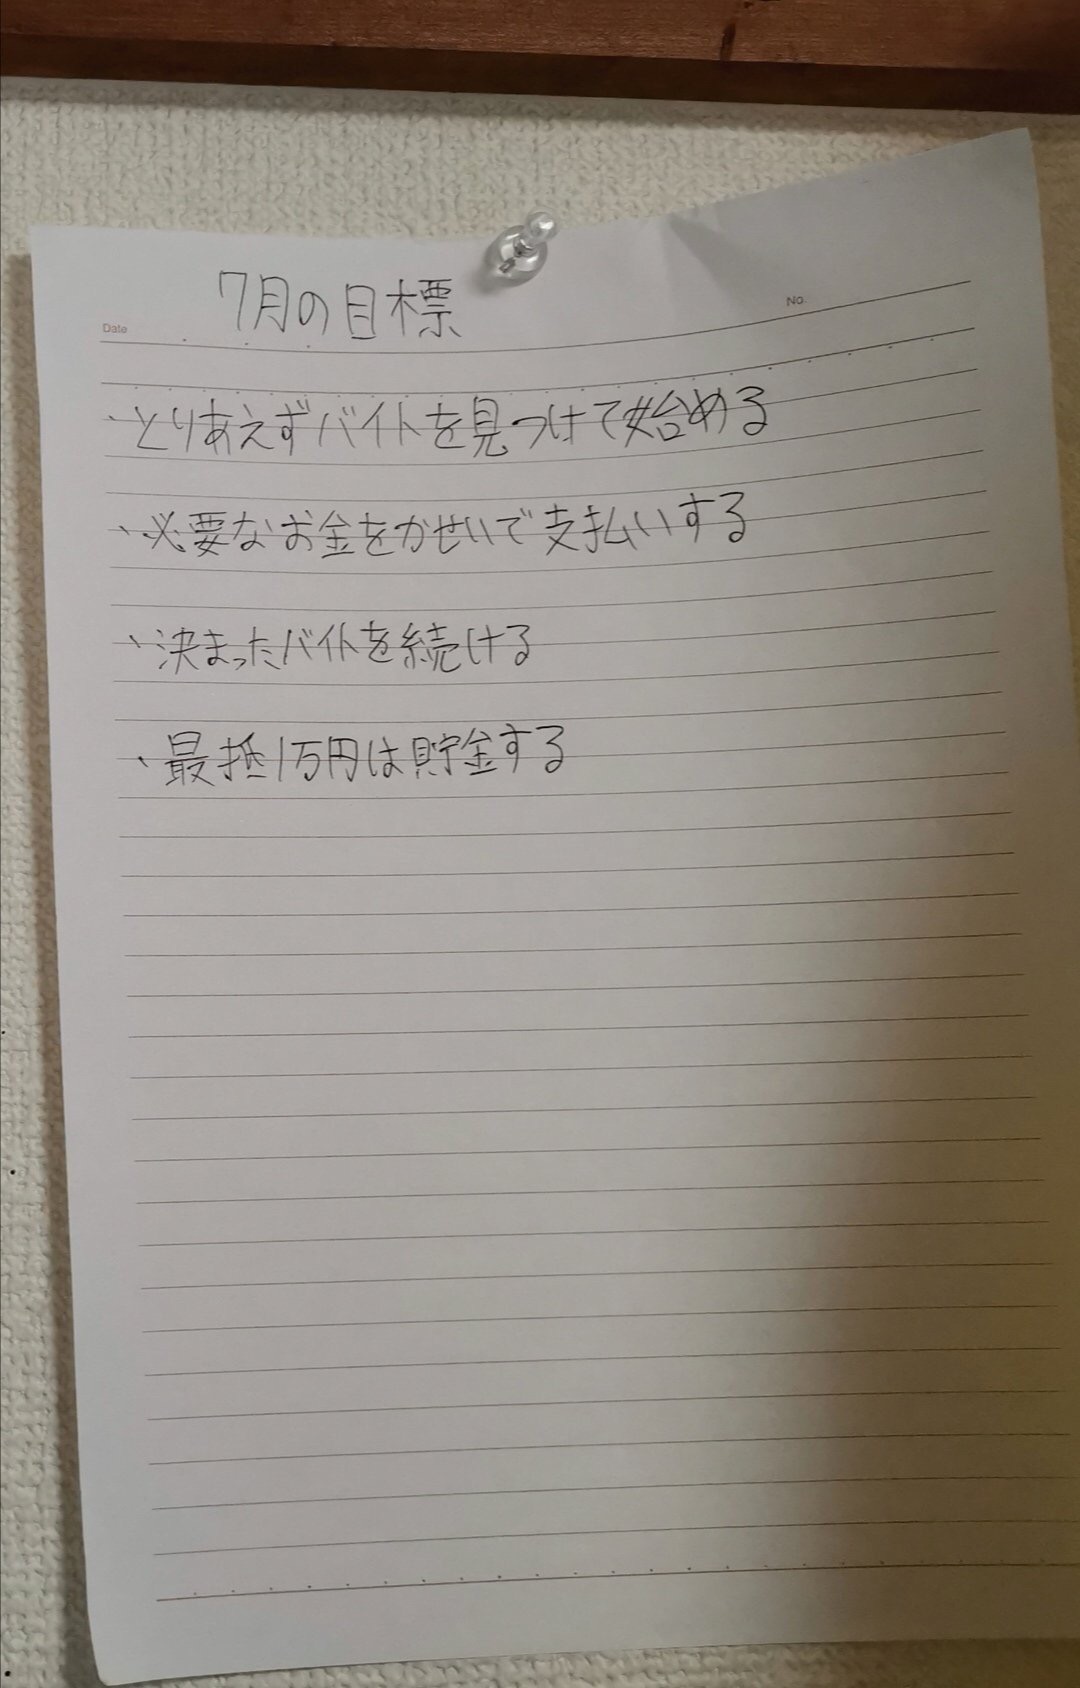 7月の目標
No.
Date
・とりあえずバイトを見つけて始める
・必要なお金をかせいで支払いする
・決まったバイトを続ける
・最抵1万円は貯金する